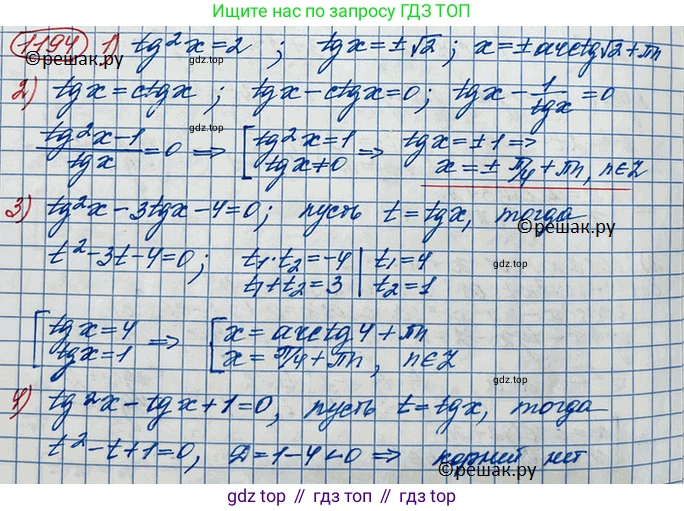 Ищите нас по запросу ГДЗ ТОП
1194 1) tg²x=2 ; tgx=±√2 ; x=±arctg√2+πn
©решак.ру gdz.top
2) tgx=ctgx ; tgx-ctgx=0; tgx-1/tgx=0
tg²x-1/tgx=0 => [tg²x=1 tgx≠0 => tgx=±1=>
x=±π/4+πn, n∈Z
gdz.top gdz.top
3) tg²x-3tgx-4=0; пусть t=tgx, тогда
©решак.ру
t²-3t-4=0; t₁·t₂=-4 | t₁=4
t₁+t₂=3 | t₂=1
gdz.top
[tgx=4 => [x=arctg4+πn
tgx=1 x=π/4+πn, n∈Z
gdz.top gdz.top
4) tg²x-tgx+1=0, пусть t=tgx, тогда
t²-t+1=0, D=1-4<0 => корней нет
©решак.ру ©решак.ру
gdz top // гдз топ // gdz.top // гдз.топ